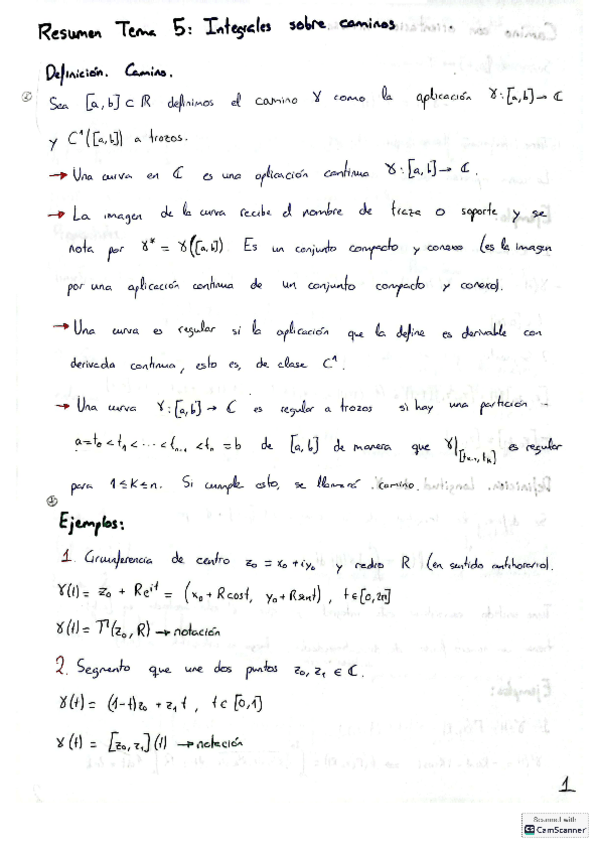 Resumen Tema 5: Integrales sobre caminos
Definición. Camino.
Sea [a,b] ⊂ R definimos el camino γ como la aplicación γ:[a,b] → ℂ
y C¹([a,b]) a trozos.
→ Una curva en ℂ es una aplicación continua γ:[a,b] → ℂ.
→ La imagen de la curva recibe el nombre de traza o soporte y se
nota por γ* = γ([a,b]). Es un conjunto compacto y conexo (es la imagen
por una aplicación continua de un conjunto compacto y conexo).
→ Una curva es regular si la aplicación que la define es derivable con
derivada continua, esto es, de clase C¹.
→ Una curva γ:[a,b] → ℂ es regular a trozos si hay una partición
a=t₀ < t₁ < ... < tₙ₋₁ < tₙ = b de [a,b] de manera que γ|[tₖ₋₁, tₖ] es regular
para 1 ≤ K ≤ n. Si cumple esto, se llamará camino.
Ejemplos:
1. Circunferencia de centro z₀ = x₀ + iy₀ y radio R (en sentido antihorario).
γ(t) = z₀ + Reⁱᵗ = (x₀ + R cost, y₀ + R sent), t ∈ [0,2π]
γ(t) = Γ(z₀, R) → notación
2. Segmento que une dos puntos z₀, z₁ ∈ ℂ.
γ(t) = (1-t)z₀ + z₁t, t ∈ [0,1]
γ(t) = [z₀, z₁](t) → notación
1
Scanned with
CS CamScanner